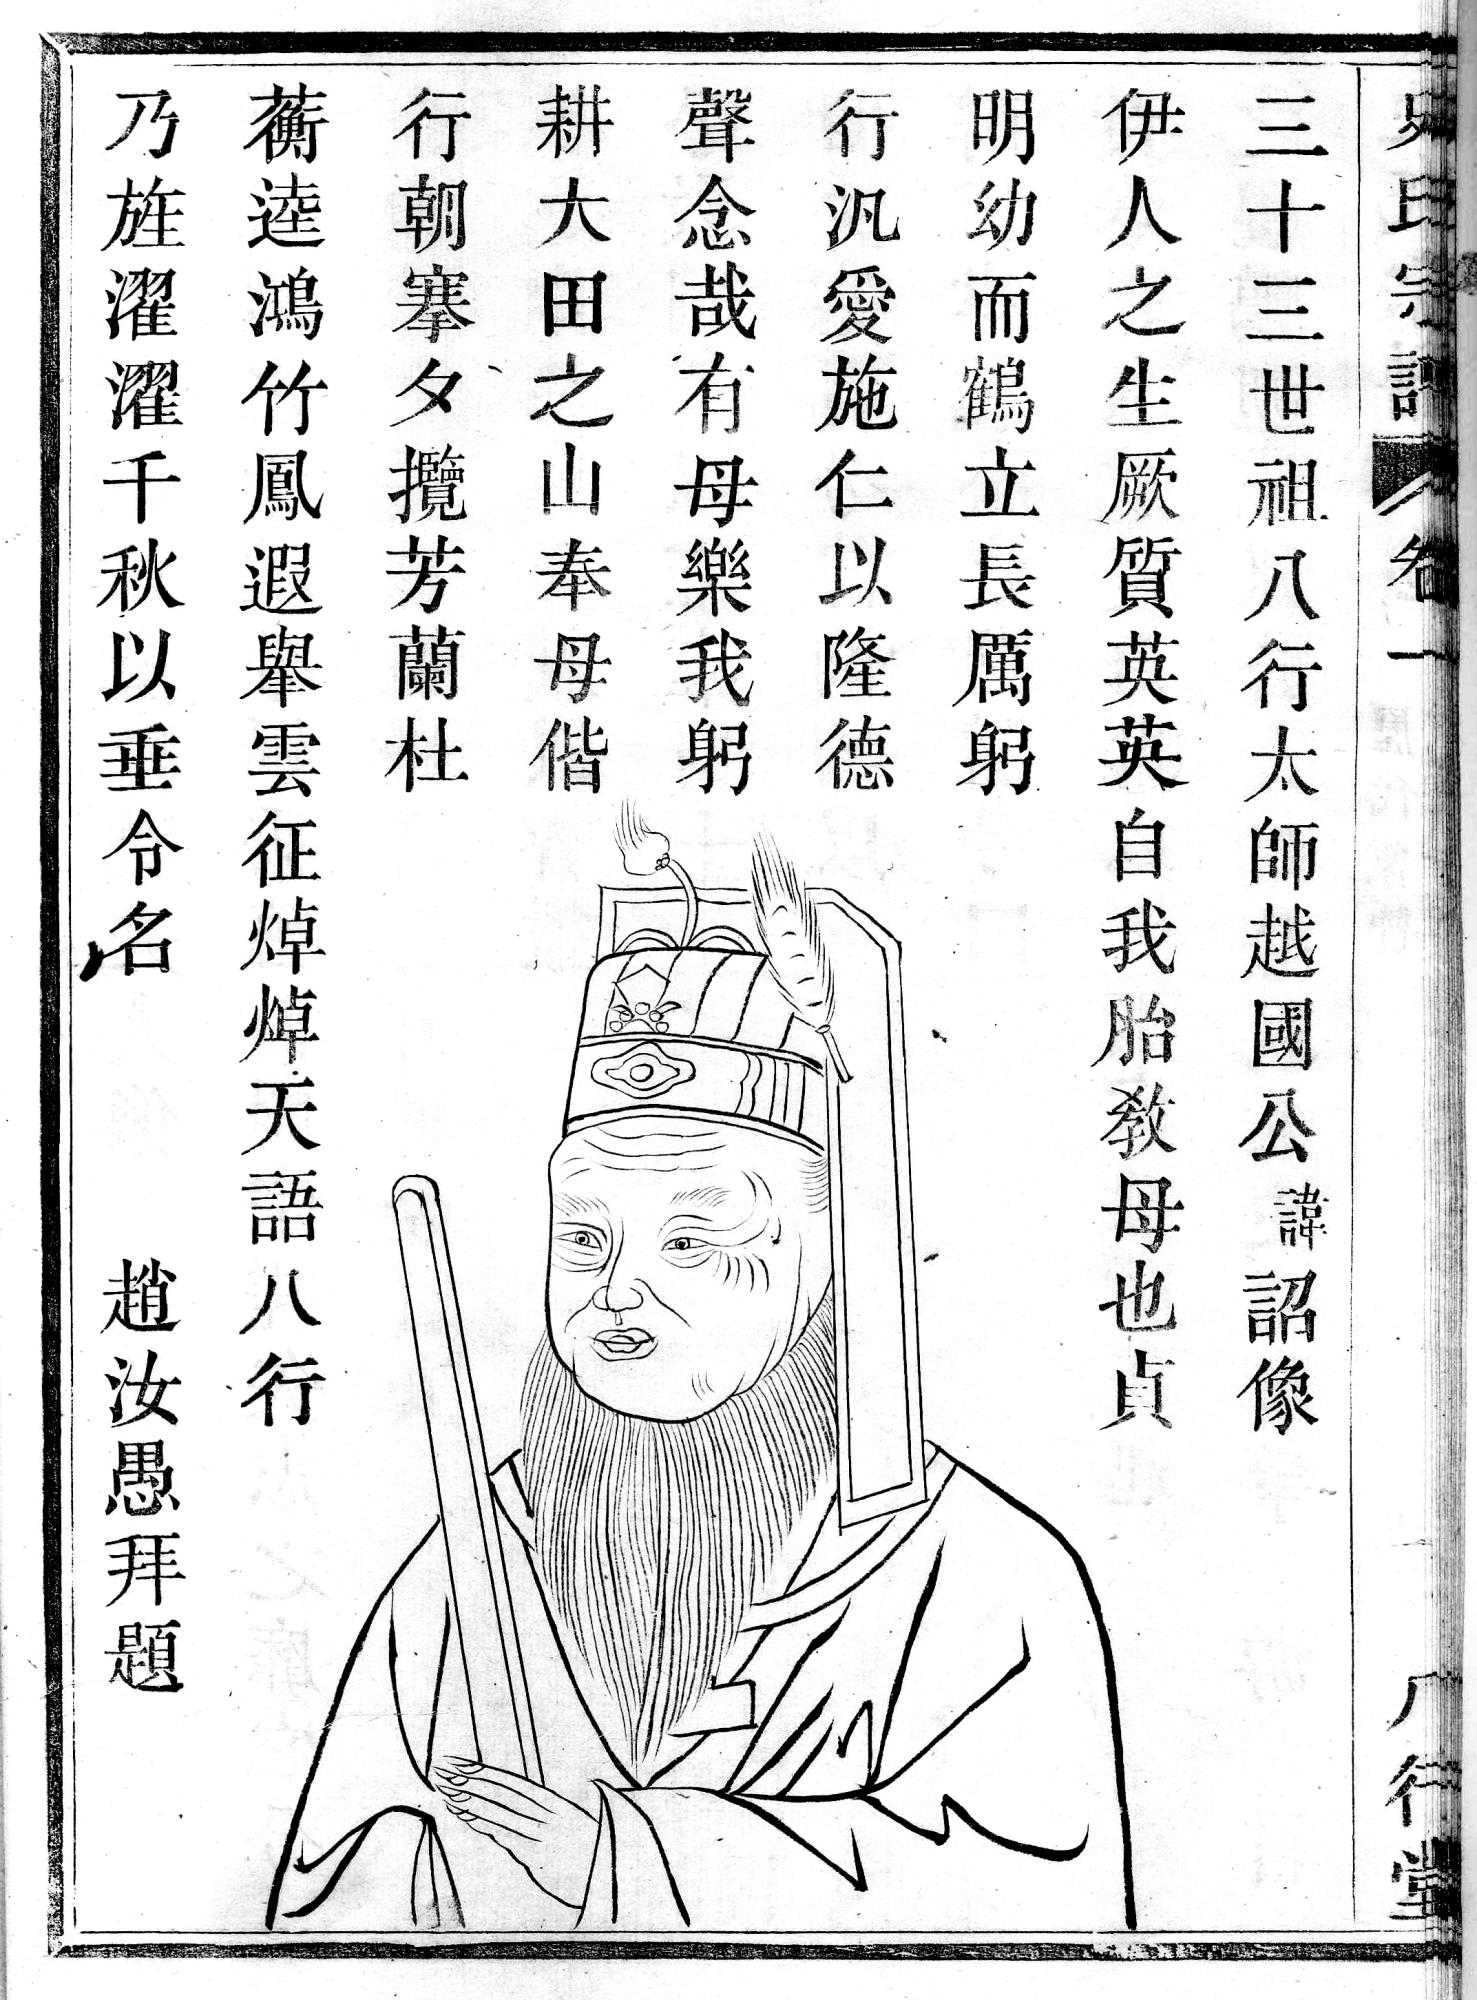 史氏宗譜 卷一 八行堂
三十三世祖八行太師越國公諱詔像
伊人之生厥質英英自我胎教母也貞
明幼而鶴立長厲躬
行汎愛施仁以隆德
聲念哉有母樂我躬
耕大田之山奉母偕
行朝搴夕攬芳蘭杜
蘅逵鴻竹鳳遐舉雲征焯焯天語八行
乃旌濯濯千秋以垂令名
趙汝愚拜題